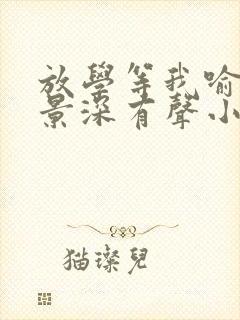 放學等我喻
景深有聲小
猫璨兒